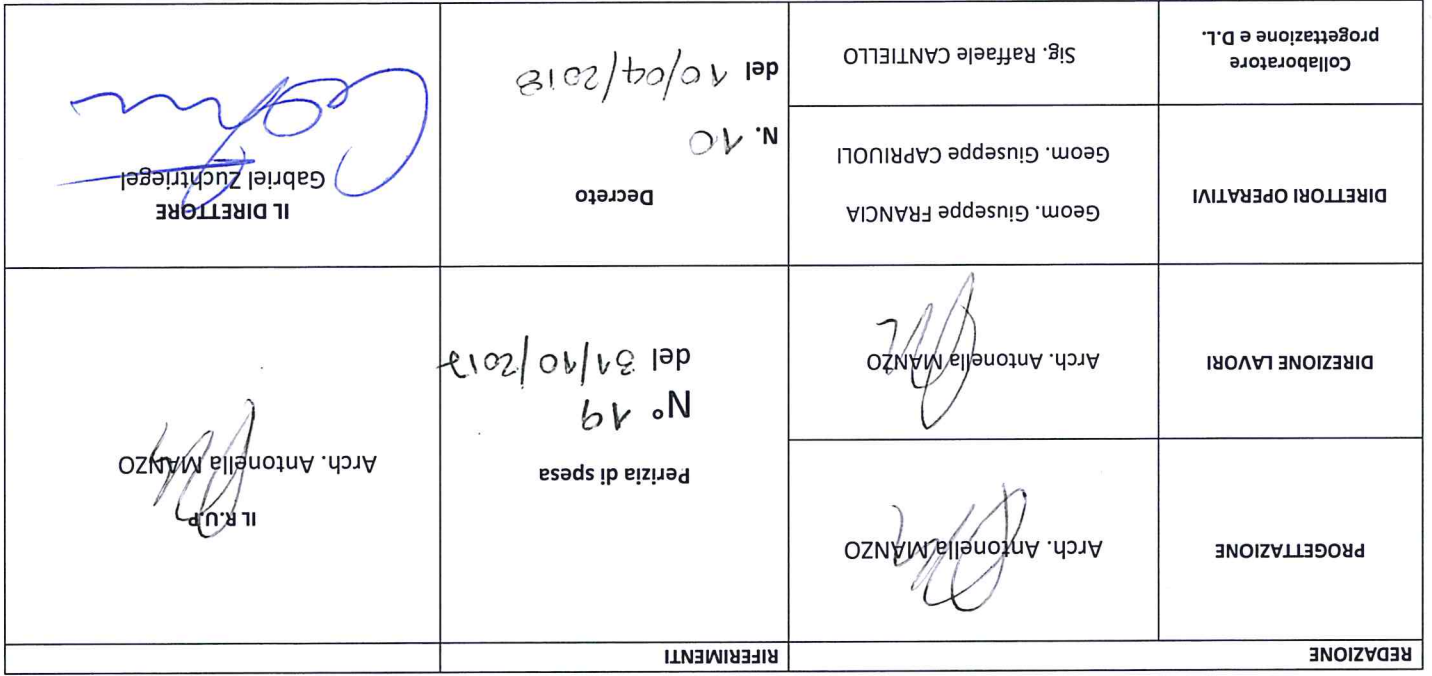 REDAZIONE
RIFERIMENTI
PROGETTAZIONE
Arch. Antonella MANZO
Perizia di spesa
N° 19
del 31/10/2017
IL R.U.P
Arch. Antonella MANZO
DIREZIONE LAVORI
Arch. Antonella MANZO
DIRETTORI OPERATIVI
Geom. Giuseppe FRANCIA
Geom. Giuseppe CAPRIUOLI
Decreto
N. 10
del 10/04/2018
IL DIRETTORE
Gabriel Zuchtriegel
Collaboratore
progettazione e D.L.
Sig. Raffaele CANTIELLO